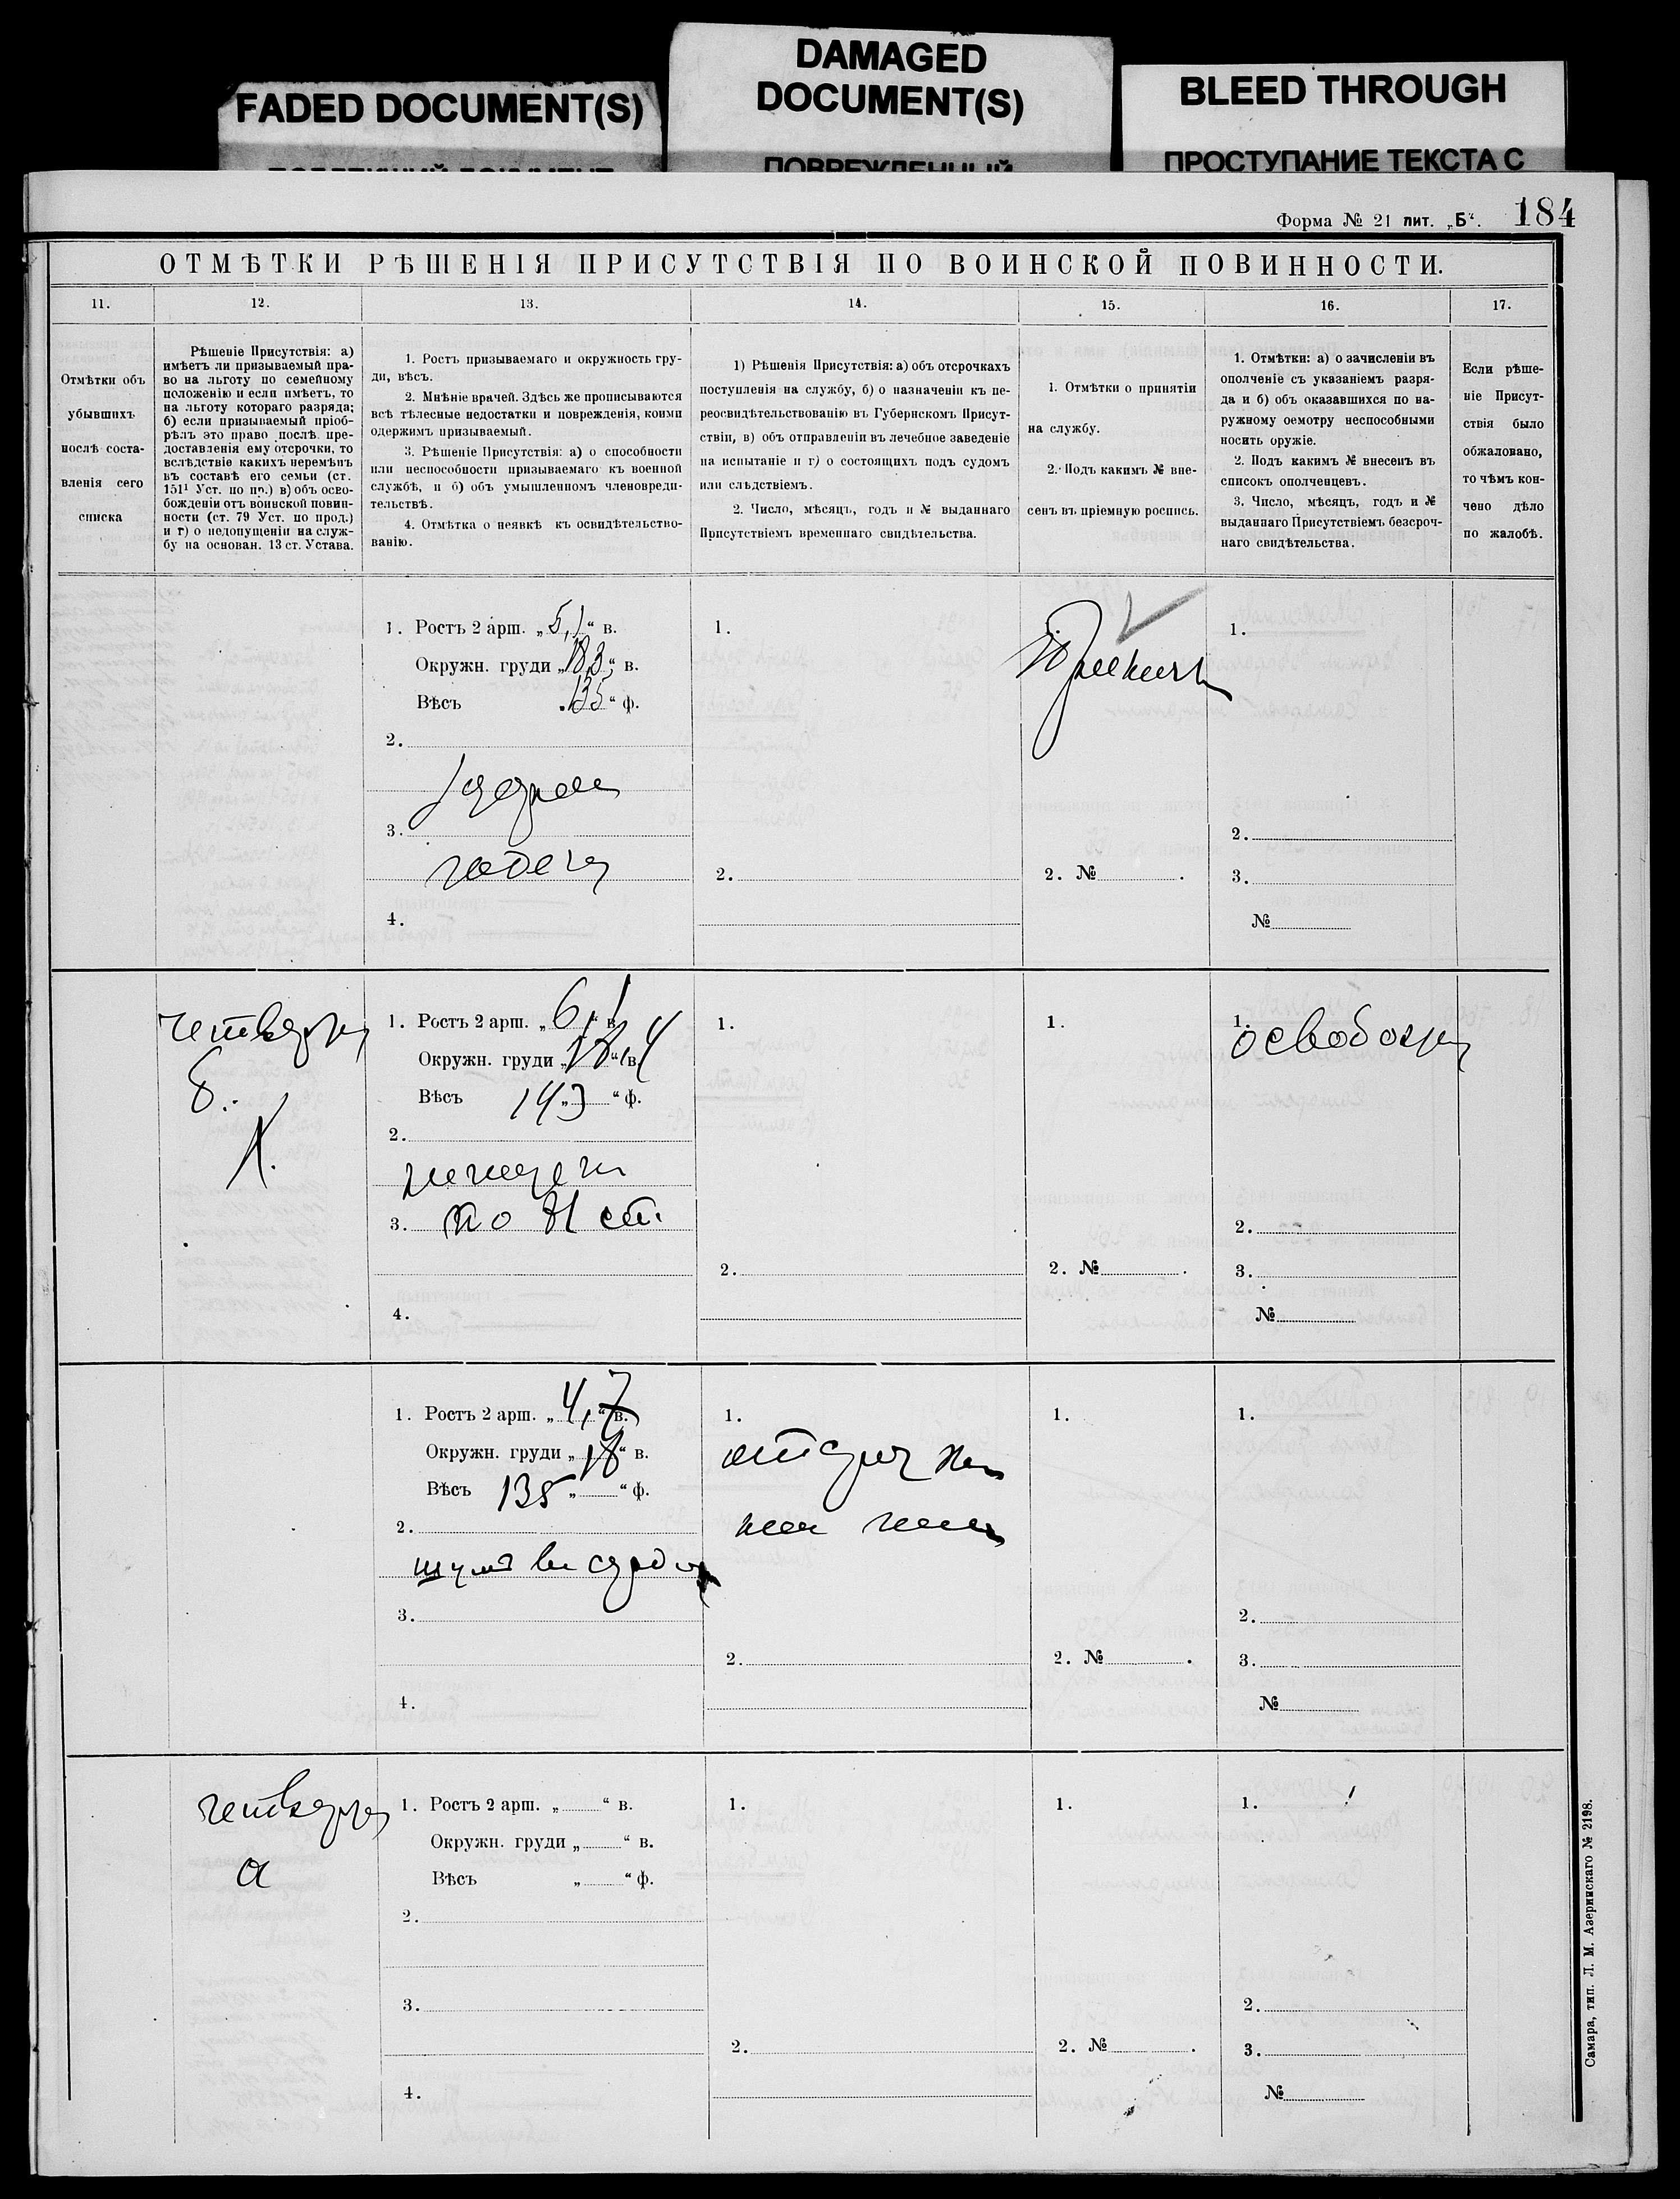 FADED DOCUMENT(S)
DAMAGED
DOCUMENT(S)
ПОВРЕЖДЕННЫЙ
BLEED THROUGH
ПРОСТУПАНИЕ ТЕКСТА С
Форма № 21 лит. „Б“. 184
ОТМѢТКИ РѢШЕНІЯ ПРИСУТСТВІЯ ПО ВОИНСКОЙ ПОВИННОСТИ.
11.
12.
13.
14.
15.
16.
17.
Отмѣтки объ
убывшихъ
послѣ соста-
вленія сего
списка
Рѣшеніе Присутствія: а)
имѣетъ ли призываемый пра-
во на льготу по семейному
положенію и если имѣетъ, то
на льготу котораго разряда;
б) если призываемый пріоб-
рѣлъ это право послѣ пре-
доставленія ему отсрочки, то
вслѣдствіе какихъ перемѣнъ
въ составѣ его семьи (ст.
151¹ Уст. по пр.) в) объ осво-
божденіи отъ воинской повин-
ности (ст. 79 Уст. по прод.)
и г) о недопущеніи на служ-
бу на основан. 13 ст. Устава.
1. Ростъ призываемаго и окружность гру-
ди, вѣсъ.
2. Мнѣніе врачей. Здѣсь же прописываются
всѣ тѣлесные недостатки и поврежденія, коими
одержимъ призываемый.
3. Рѣшеніе Присутствія: а) о способности
или неспособности призываемаго къ военной
службѣ, и б) объ умышленномъ членовреди-
тельствѣ.
4. Отмѣтка о неявкѣ къ освидѣтельство-
ванію.
1) Рѣшенія Присутствія: а) объ отсрочкахъ
поступленія на службу, б) о назначеніи къ пе-
реосвидѣтельствованію въ Губернскомъ Присут-
ствіи, в) объ отправленіи въ лечебное заведеніе
на испытаніе и г) о состоящихъ подъ судомъ
или слѣдствіемъ.
2. Число, мѣсяцъ, годъ и № выданнаго
Присутствіемъ временнаго свидѣтельства.
1. Отмѣтки о принятіи
на службу.
2. Подъ какимъ № вне-
сенъ въ пріемную роспись.
1. Отмѣтки: а) о зачисленіи въ
ополченіе съ указаніемъ разря-
да и б) объ оказавшихся по на-
ружному осмотру неспособными
носить оружіе.
2. Подъ какимъ № внесенъ въ
списокъ ополченцевъ.
3. Число, мѣсяцъ, годъ и №
выданнаго Присутствіемъ безсроч-
наго свидѣтельства.
Если рѣше-
ніе Присут-
ствія было
обжаловано,
то чѣмъ кон-
чено дѣло
по жалобѣ.
1. Ростъ 2 арш. „5,1“ в.
Окружн. груди „18,3“ в.
Вѣсъ „135“ ф.
2.
здоров
3.
годен
4.
1.
2.
Принят
2. №
1.
2.
3.
№
четверт
б.
1. Ростъ 2 арш. „6,1“ в.
Окружн. груди „18,4“ в.
Вѣсъ 143 „ “ ф.
2.
3. по 81 ст.
4.
1.
2.
1.
2. №
1.
освобожд
2.
3.
№
1. Ростъ 2 арш. „4,7“ в.
Окружн. груди „18“ в.
Вѣсъ 135 „ “ ф.
2.
шумъ въ сердц
3.
4.
1.
2.
1.
2. №
1.
2.
3.
№
четверт
а
1. Ростъ 2 арш. „ “ в.
Окружн. груди „ “ в.
Вѣсъ „ “ ф.
2.
3.
4.
1.
2.
1.
2. №
1.
2.
3.
№
Самара, тип. Л. М. Азеринскаго № 2198.